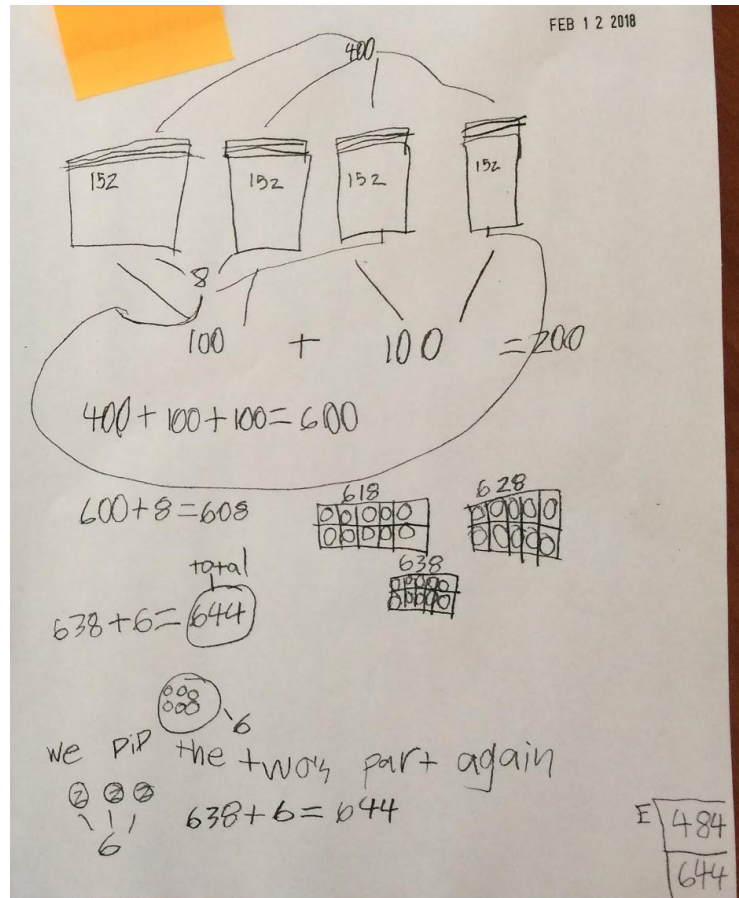 FEB 12 2018
400
152 152 152 152
8
100 + 100 = 200
400 + 100 + 100 = 600
600 + 8 = 608
618 628
638
total
638 + 6 = 644
6
we DiD the two's part again
2 2 2
6
638 + 6 = 644
E 484
644